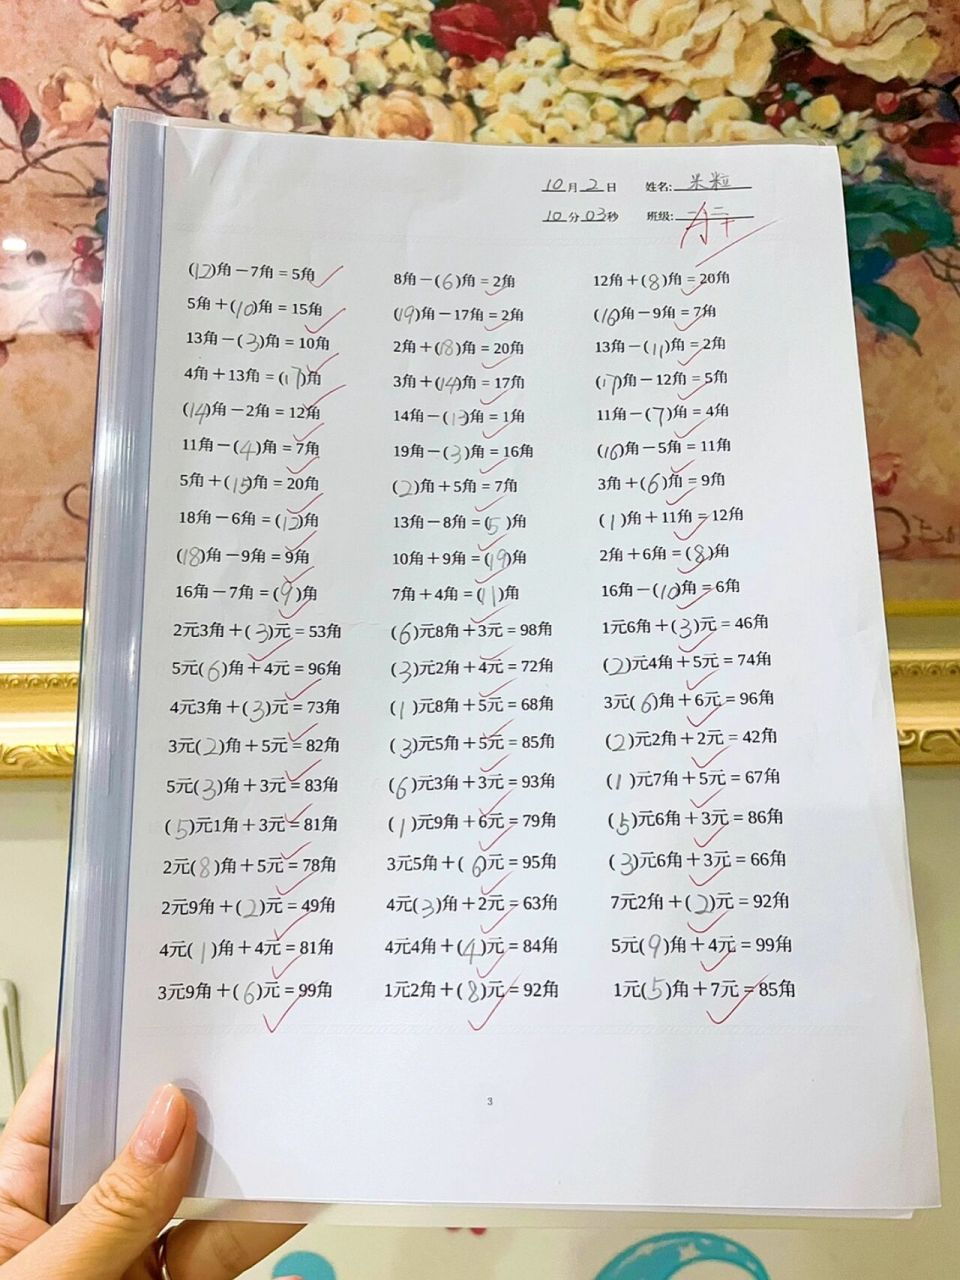 10月2日 姓名: 米粒
10分03秒 班级:
(12)角－7角＝5角 8角－(6)角＝2角 12角＋(8)角＝20角
5角＋(10)角＝15角 (19)角－17角＝2角 (16)角－9角＝7角
13角－(3)角＝10角 2角＋(18)角＝20角 13角－(11)角＝2角
4角＋13角＝(17)角 3角＋(14)角＝17角 (17)角－12角＝5角
(14)角－2角＝12角 14角－(13)角＝1角 11角－(7)角＝4角
11角－(4)角＝7角 19角－(3)角＝16角 (16)角－5角＝11角
5角＋(15)角＝20角 (2)角＋5角＝7角 3角＋(6)角＝9角
18角－6角＝(12)角 13角－8角＝(5)角 (1)角＋11角＝12角
(18)角－9角＝9角 10角＋9角＝(19)角 2角＋6角＝(8)角
16角－7角＝(9)角 7角＋4角＝(11)角 16角－(10)角＝6角
2元3角＋(3)元＝53角 (6)元8角＋3元＝98角 1元6角＋(3)元＝46角
5元(6)角＋4元＝96角 (3)元2角＋4元＝72角 (2)元4角＋5元＝74角
4元3角＋(3)元＝73角 (1)元8角＋5元＝68角 3元(6)角＋6元＝96角
3元(2)角＋5元＝82角 (3)元5角＋5元＝85角 (2)元2角＋2元＝42角
5元(3)角＋3元＝83角 (6)元3角＋3元＝93角 (1)元7角＋5元＝67角
(5)元1角＋3元＝81角 (1)元9角＋6元＝79角 (5)元6角＋3元＝86角
2元(8)角＋5元＝78角 3元5角＋(6)元＝95角 (3)元6角＋3元＝66角
2元9角＋(2)元＝49角 4元(3)角＋2元＝63角 7元2角＋(2)元＝92角
4元(1)角＋4元＝81角 4元4角＋(4)元＝84角 5元(9)角＋4元＝99角
3元9角＋(6)元＝99角 1元2角＋(8)元＝92角 1元(5)角＋7元＝85角
3